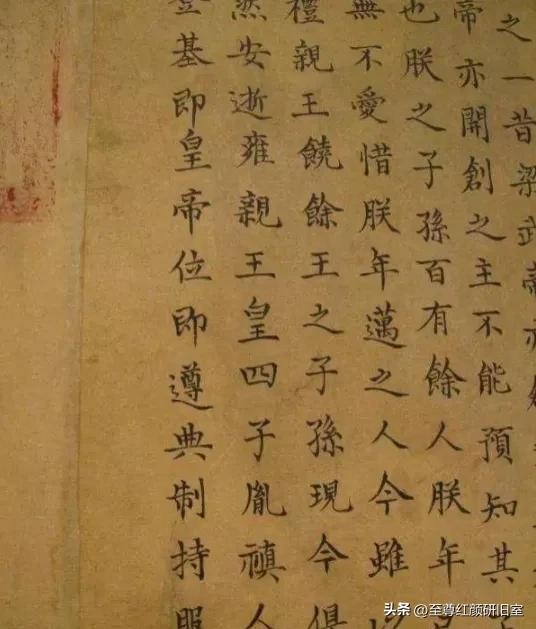 之一昔梁武帝亦
帝亦開創之主不能預知其
也朕之子孫百有餘人朕年
無不愛惜朕年邁之人今雖以
禮親王饒餘王之子孫現今俱
然安逝雍親王皇四子胤禛人
登基即皇帝位即遵典制持服
头条 @至尊红颜研旧室